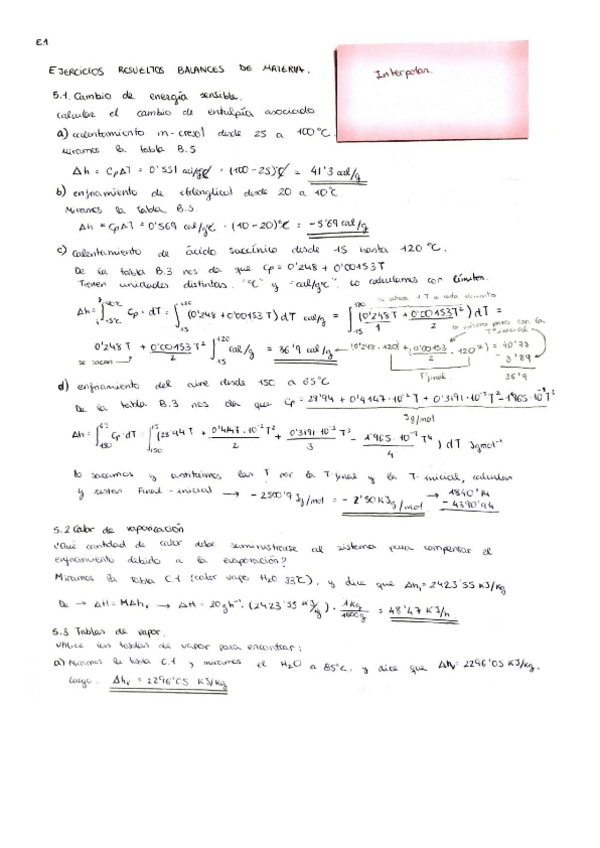 E1
EJERCICIOS RESUELTOS BALANCES DE MATERIA.
Interpolar.
5.1. Cambio de energía sensible.
Calcular el cambio de entalpía asociado
a) calentamiento m-cresol desde 25 a 100°C.
Miramos la tabla B.5
Δh = CpΔT = 0'551 cal/g°C · (100-25)°C = 41'3 cal/g
b) enfriamiento de etilenglicol desde 20 a 10°C
Miramos la tabla B.5.
Δh = CpΔT = 0'569 cal/g°C · (10-20)°C = -5'69 cal/g
c) Calentamiento de ácido succínico desde 15 hasta 120 °C.
De la tabla B.3 nos da que Cp = 0'248 + 0'00153T
Tienen unidades distintas. "°C" y "cal/g°C". Lo calculamos con límites.
Δh = ∫ Cp · dT = ∫ (0'248 + 0'00153T) dT cal/g = ∫ (0'248T/1 + 0'00153T²/2) dT =
0'248T + 0'00153T²/2 ∫ cal/g = 36'9 cal/g (0'248 · 120) + (0'00153/2 · 120²) = 40'77
se sacan T final - 3'89
36'9
d) enfriamiento del aire desde 150 a 65°C
De la tabla B.3 nos da que Cp = 28'94 + 0'4147·10⁻² T + 0'3191·10⁻⁵ T² - 1'965·10⁻⁹ T³
J/g/mol
Δh = ∫ Cp·dT = ∫ (28'94T + 0'4147·10⁻²T²/2 + 0'3191·10⁻⁵T³/3 - 1'965·10⁻⁹T⁴/4) dT Jgmol⁻¹
lo sacamos y sustituimos las T por la T final y la T inicial, calculas
y restas Final - inicial → -2500'9 J/g/mol = -2'50 KJ/g/mol → 1890'14
- 4390'94
5.2 Calor de vaporización
¿Qué cantidad de calor debe suministrarse al sistema para compensar el
enfriamiento debido a la evaporación?
Miramos la tabla C.1 (calor vapo H₂O 33°C), y dice que Δhv = 2423'55 KJ/Kg
De → ΔH = MΔhv → ΔH = 20gh⁻¹ · (2423'55 KJ/Kg) · 1Kg/1000g = 48'47 KJ/h
5.3 Tablas de vapor.
Utilice las tablas de vapor para encontrar:
a) Miramos la tabla C.1 y miramos el H₂O a 85°C, y dice que Δhv: 2296'05 KJ/Kg.
luego. Δhv = 2296'05 KJ/Kg